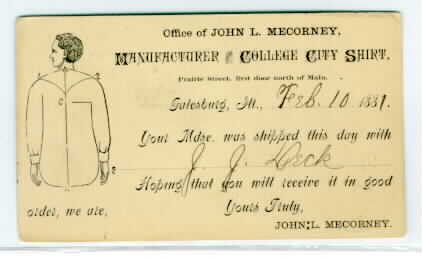 Office of JOHN L. MECORNEY,
MANUFACTURER OF COLLEGE CITY SHIRT,
Prairie Street, first door north of Main.
Galesburg, Ill., Feb. 10 1881.
Your Mdse. was shipped this day with
J. J. Deck
Hoping that you will receive it in good
order, we are, Yours Truly,
JOHN L. MECORNEY.
C